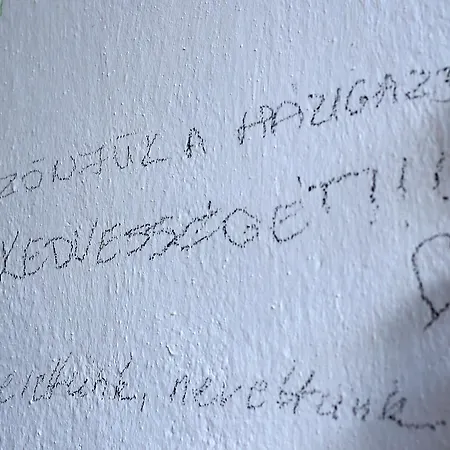 ZÖNJÜK A HÁZIGAZD
KEDVESSÉGÉT!!
nevettünk